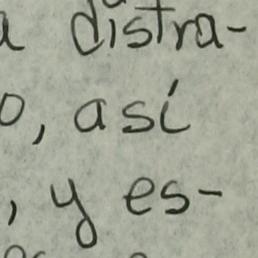 a distra-
o, así
, y es-